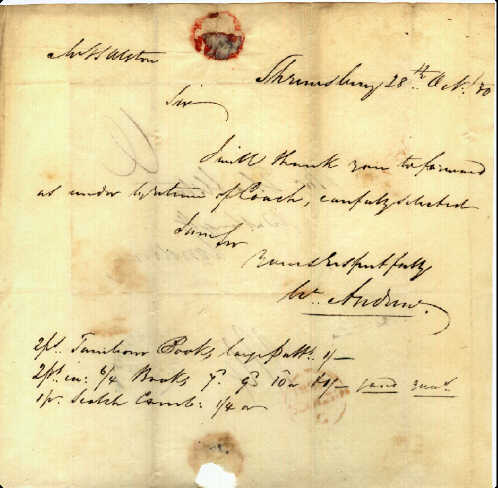 Mr Halston
Shrewsbury 28th Octr 30
Sir
I will thank you to forward
as under by return of Coach, carefully selected
I am Sir
Yours Respectfully
Wm Andrew.
2ps. Tambour Books large patts. 1/-
2ps in: 6/4 Books 10d or
1 ps. Scotch Camb: 1/4 or